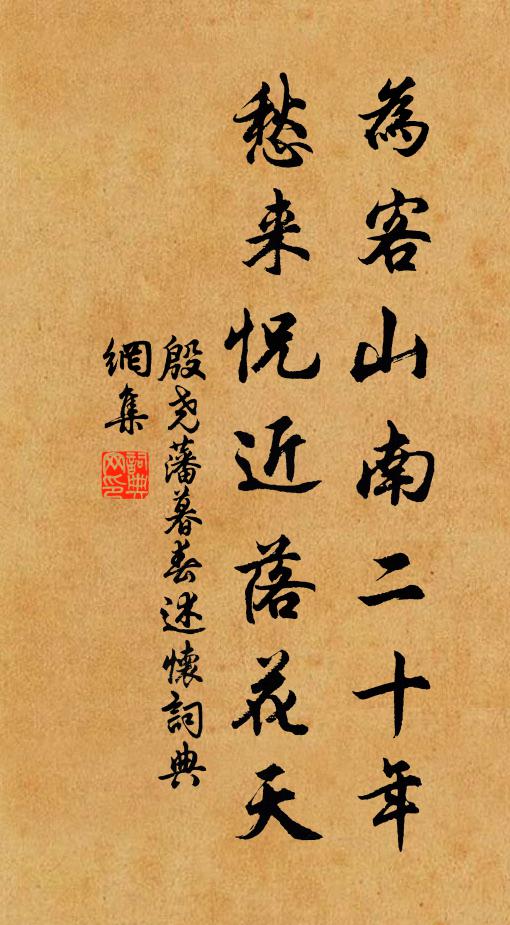 為客山南二十年
愁来怳近落花天
殷尧藩暮春述懷詞典
網集
詞典網印